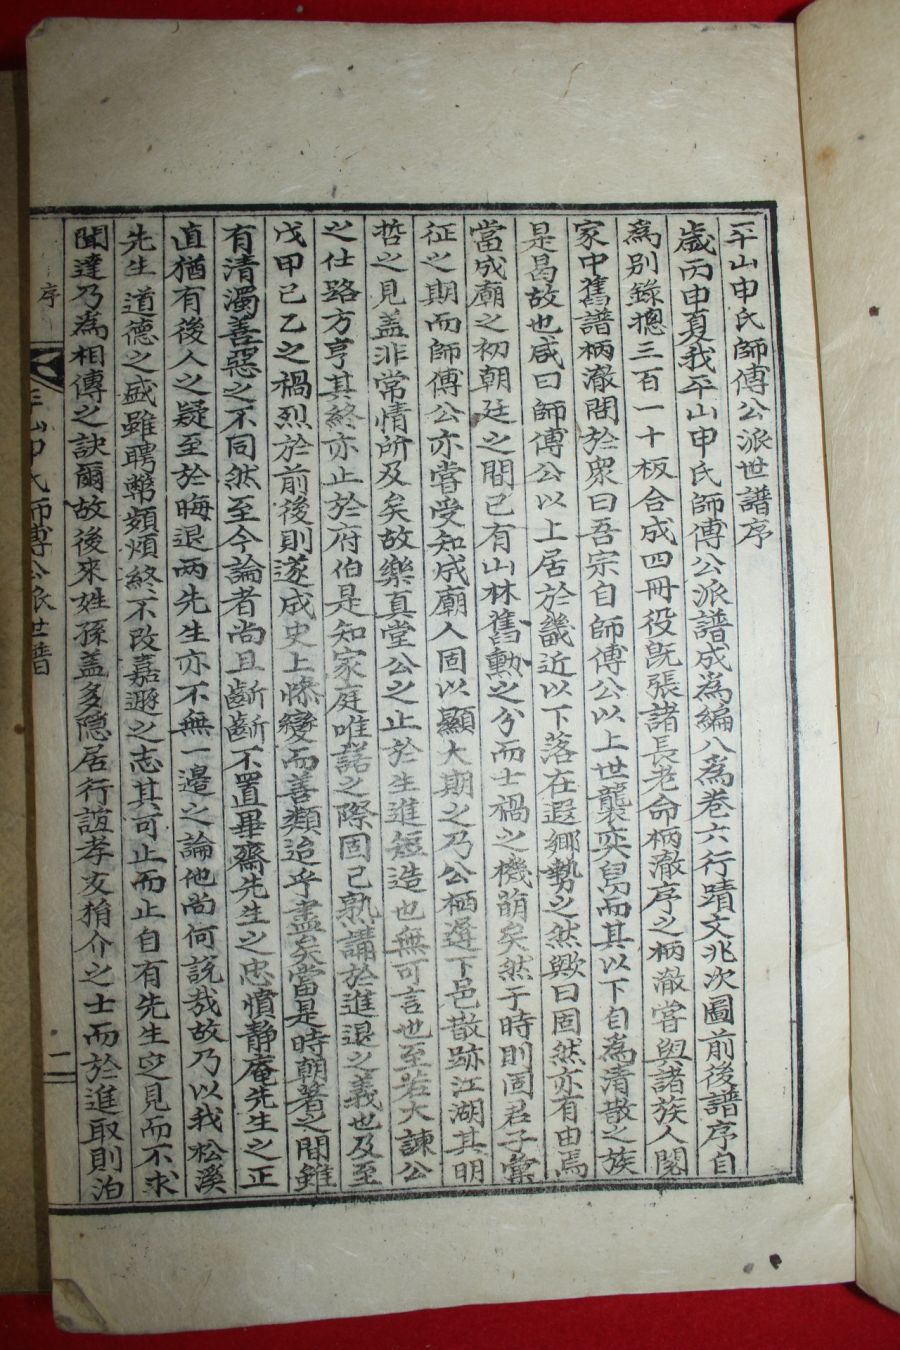 平山申氏師傅公派世譜序
歲丙申夏我平山申氏師傅公派譜成爲編八爲卷六行蹟文兆次圖前後譜序自
爲別錄摠三百一十板合成四冊役旣張諸長老命柄澈序之柄澈嘗與諸族人閱
家中舊譜柄澈問於衆曰吾宗自師傅公以上世襲奕舃而其以下自爲清散之族
是曷故也咸曰師傅公以上居於畿近以下落在遐鄉勢之然歟曰固然亦有由焉
當成廟之初朝廷之間已有山林舊勳之分而士禍之機萌矣然于時則固君子彙
征之期而師傅公亦嘗受知成廟人固以顯大期之乃公栖遑下邑散跡江湖其明
哲之見盖非常情所及矣故樂真堂公之止於生進短造也無可言也至若大諫公
之仕路方亨其終亦止於府伯是知家庭唯諾之際固已熟講於進退之義也及至
戊甲己乙之禍烈於前後則遂成史上慘變而善類迨乎盡矣當是時朝著之間雖
有清濁善惡之不同然至今論者尚且齗齗不置畢齋先生之忠憤靜庵先生之正
直猶有後人之疑至於晦退兩先生亦不無一邊之論他尚何說哉故乃以我松溪
先生道德之盛雖聘幣頻煩終不改嘉遯之志其可止而止自有先生定見而不求
聞達乃爲相傳之訣爾故後來姓孫盖多隱居行誼孝友狷介之士而於進取則泊
序
平山申氏師傅公派世譜
一